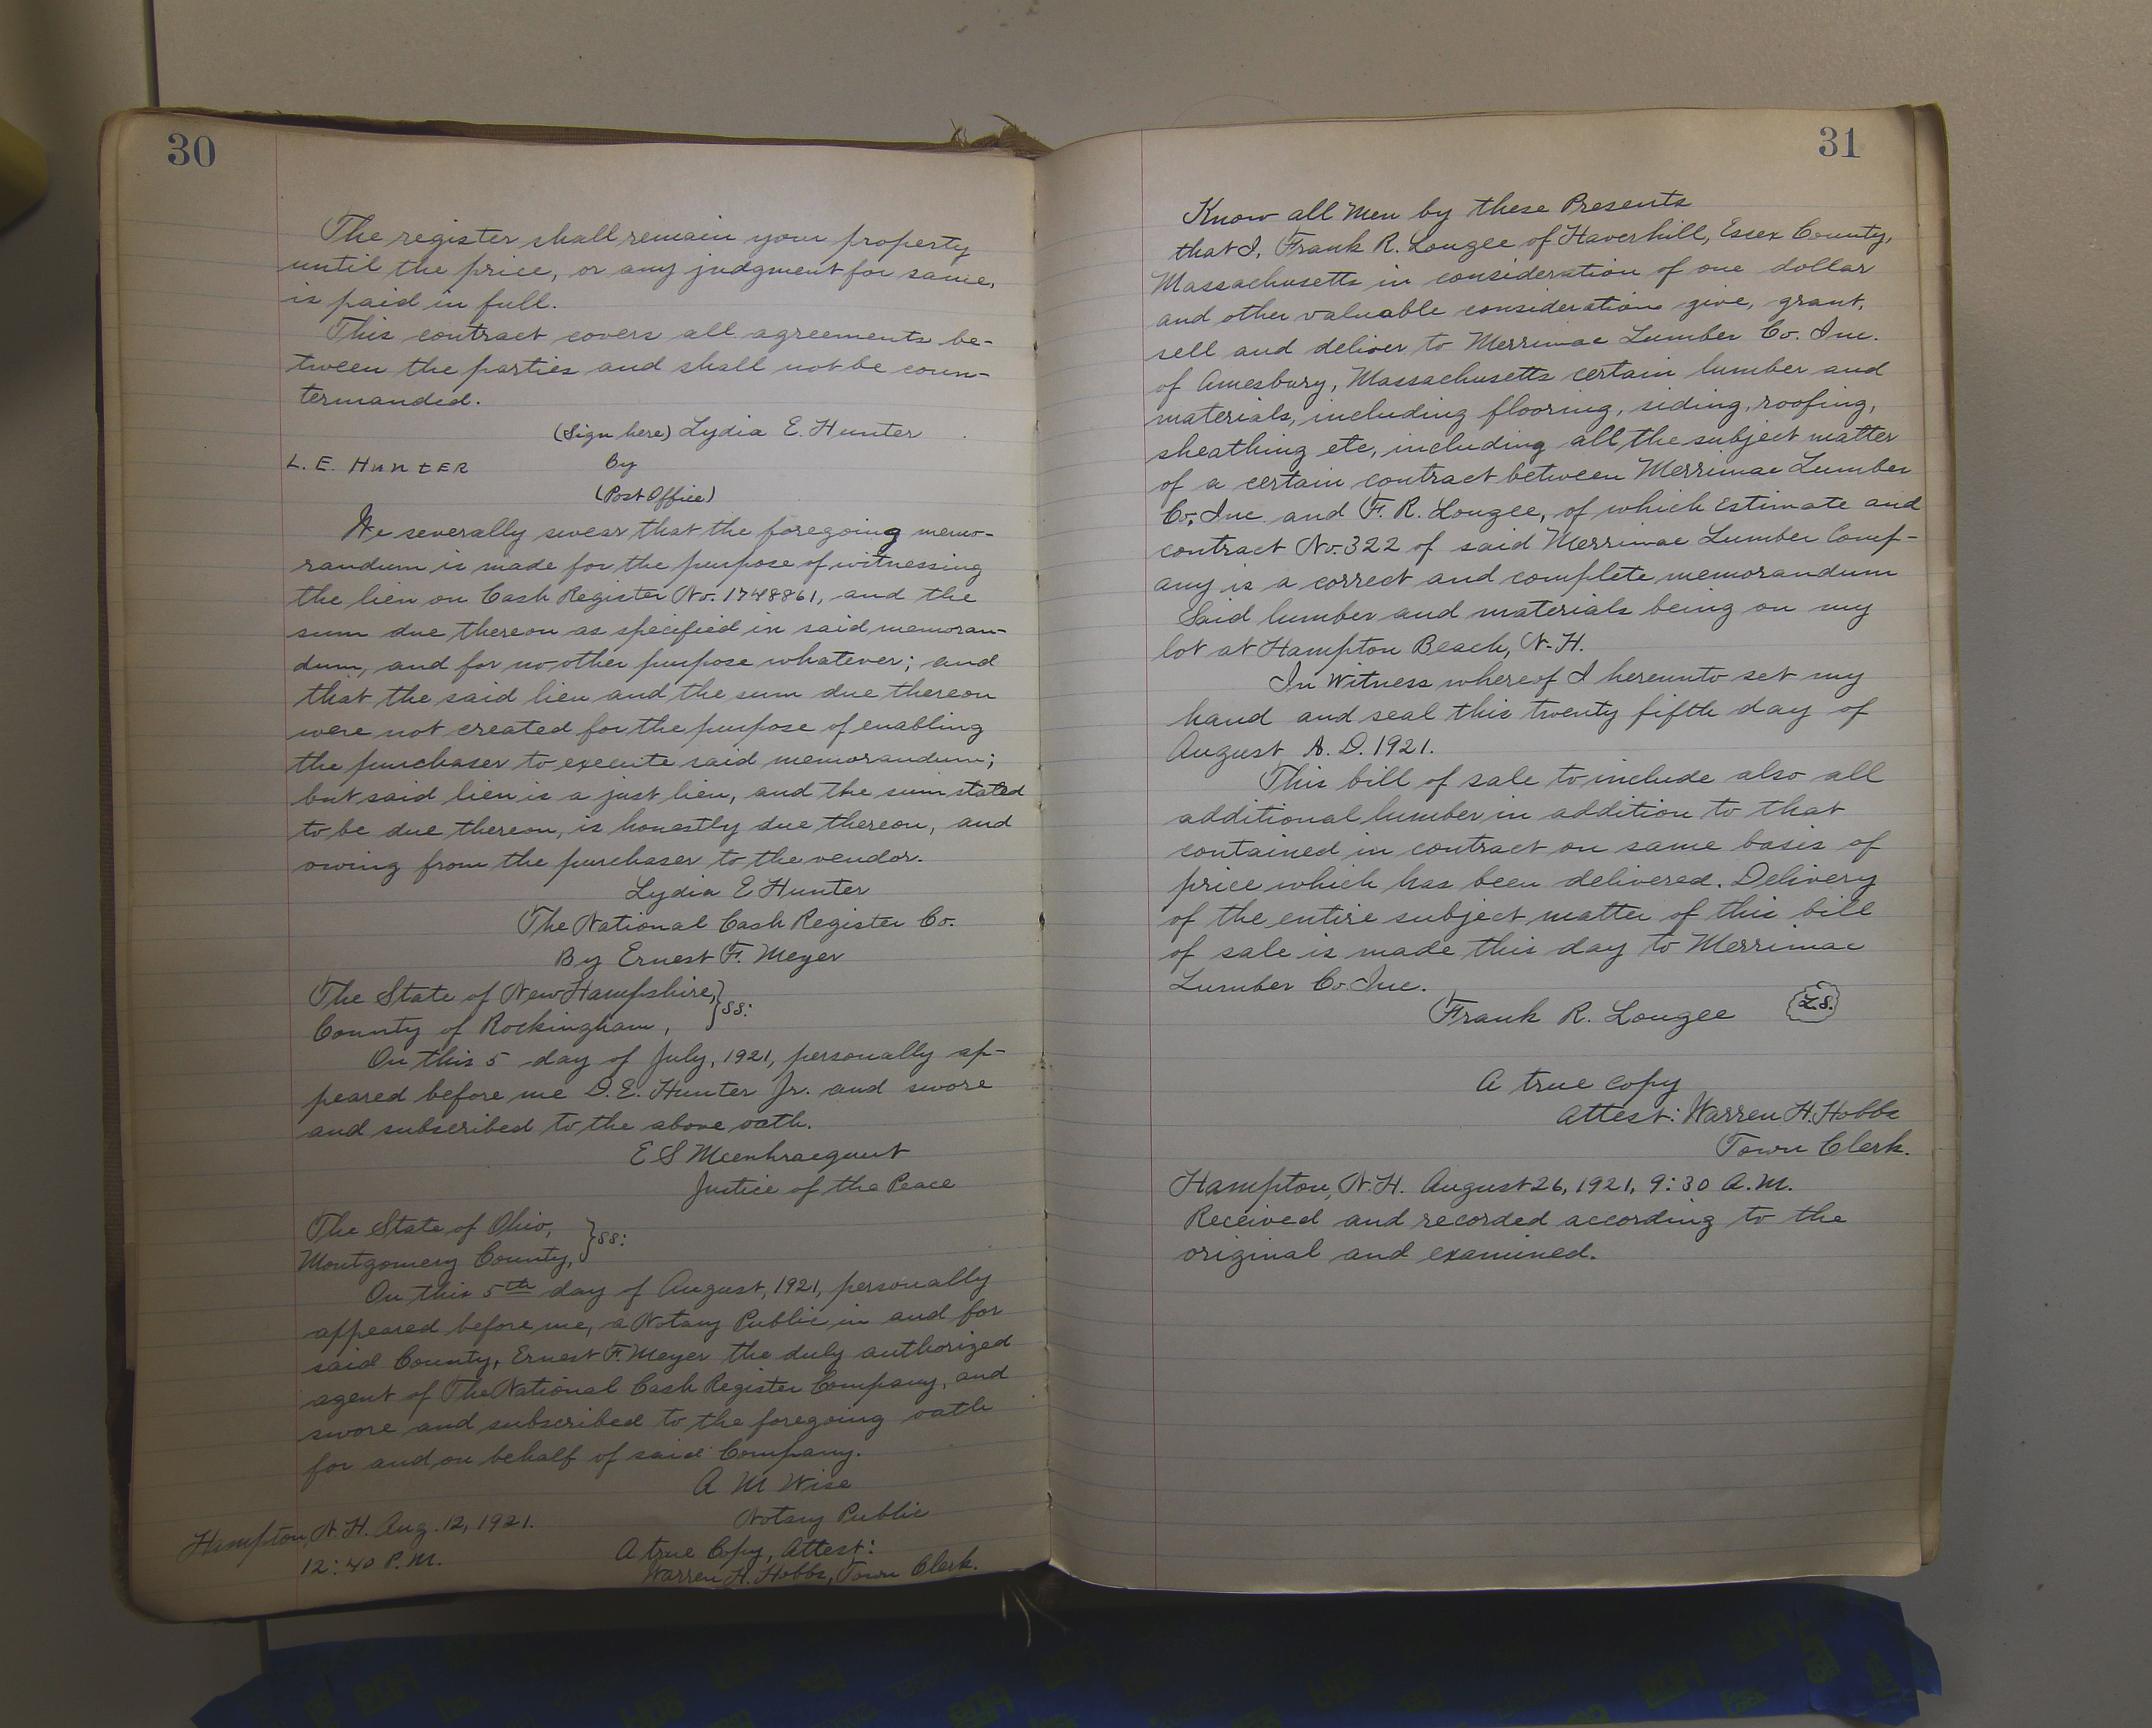 30
The register shall remain your property
until the price, or any judgment for same,
is paid in full.
This contract covers all agreements be-
tween the parties and shall not be coun-
termanded.
(Sign here) Lydia E. Hunter
L. E. HUNTER By
(Post Office)
We severally swear that the foregoing memo-
randum is made for the purpose of witnessing
the lien on Cash Register No. 1748861, and the
sum due thereon as specified in said memoran-
dum, and for no other purpose whatever; and
that the said lien and the sum due thereon
were not created for the purpose of enabling
the purchaser to execute said memorandum;
but said lien is a just lien, and the sum stated
to be due thereon, is honestly due thereon, and
owing from the purchaser to the vendor.
Lydia E Hunter
The National Cash Register Co.
By Ernest F. Meyer
The State of New Hampshire, } ss:
County of Rockingham,
On this 5 day of July, 1921, personally ap-
peared before me D. E. Hunter Jr. and swore
and subscribed to the above oath.
E S
Justice of the Peace
The State of Ohio, } ss:
Montgomery County,
On this 5th day of August, 1921, personally
appeared before me, a Notary Public in and for
said County, Ernest F. Meyer the duly authorized
agent of The National Cash Register Company, and
swore and subscribed to the foregoing oath
for and on behalf of said Company.
A M Wise
Notary Public
Hampton, N. H. Aug. 12, 1921.
12:40 P.M.
A true Copy, Attest:
Warren H. Hobbs, Town Clerk.
31
Know all Men by these Presents
that I, Frank R. Lougee of Haverhill, Essex County,
Massachusetts in consideration of one dollar
and other valuable consideration give, grant,
sell and deliver to Merrimac Lumber Co. Inc.
of Amesbury, Massachusetts certain lumber and
materials, including flooring, siding, roofing,
sheathing etc, including all the subject matter
of a certain contract between Merrimac Lumber
Co. Inc. and F. R. Lougee, of which Estimate and
contract No. 322 of said Merrimac Lumber Comp-
any is a correct and complete memorandum
Said lumber and materials being on my
lot at Hampton Beach, N. H.
In Witness whereof I hereunto set my
hand and seal this twenty fifth day of
August A. D. 1921.
This bill of sale to include also all
additional lumber in addition to that
contained in contract on same basis of
price which has been delivered. Delivery
of the entire subject matter of this bill
of sale is made this day to Merrimac
Lumber Co. Inc.
Frank R. Lougee L.S.
A true copy
Attest: Warren H. Hobbs
Town Clerk.
Hampton, N.H. August 26, 1921, 9:30 A.M.
Received and recorded according to the
original and examined.